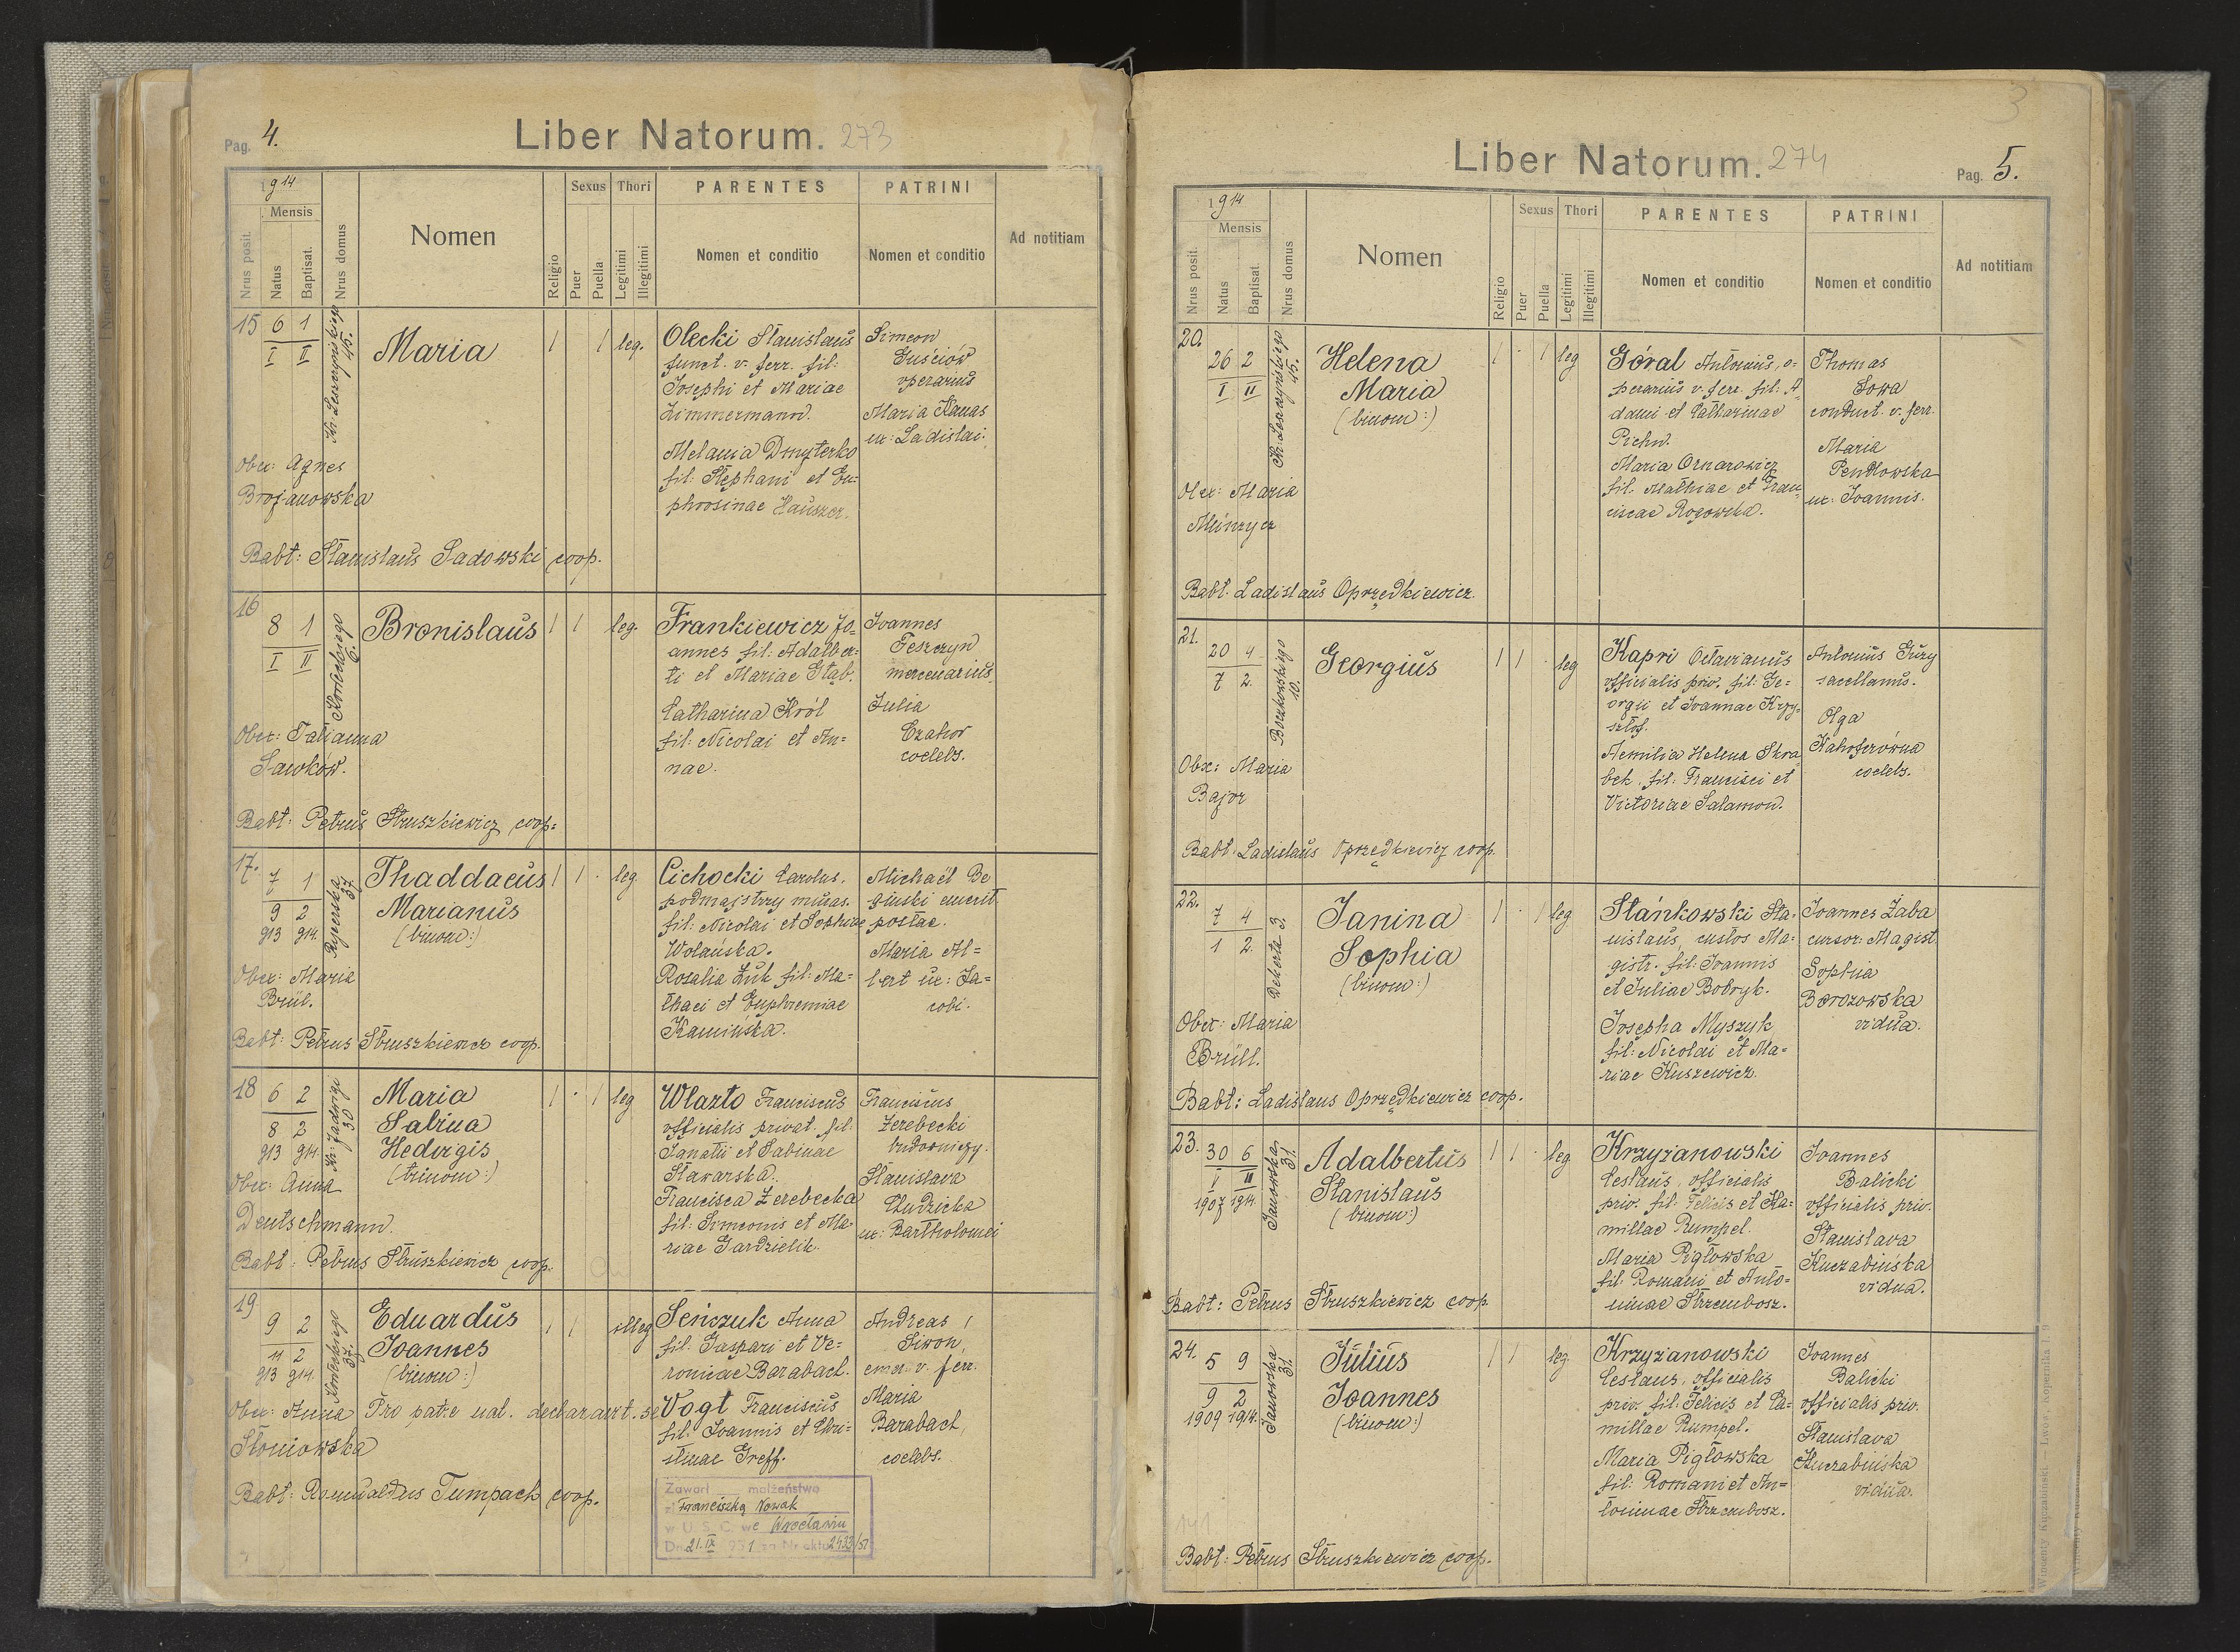 Pag. 4.
Liber Natorum. 273
1914
Mensis
Nrus posit.
Natus
Baptisat.
Nrus domus
Nomen
Religio
Sexus
Puer
Puella
Thori
Legitimi
Illegitimi
PARENTES
Nomen et conditio
PATRINI
Nomen et conditio
Ad notitiam
15
6 1
I II
45.
Maria
1 1 leg.
Olecki Stanislaus
funct. v. ferr. fil:
Josephi et Mariae
Zimmermann.
Melania Dmyterko
fil: Stephani et Eu=
phrosinae Hauszer.
Simeon
operarius
Maria Kanas
ux: Ladislai.
Obex: Agnes
Brojanowska
Babt: Stanislaus Sadowski coop.
16
8 1
I II
6.
Bronislaus
1 1 leg.
Frankiewicz Jo=
annes fil: Adalber=
ti et Mariae Głąb.
Catharina Król
fil: Nicolai et An=
nae.
Joannes
Feszczyn
mercenarius.
Julia
Czahor
coelebs.
Obex: Tatianna
Sawków.
Babt: Petrus Struszkiewicz coop=
17.
7 1
9 2
913 914.
37.
Thaddaeus
Marianus
(binom:)
1 1 . leg.
Cichocki Carolus,
podmajstrzy muras.
fil: Nicolai et Sophiae
Wolańska.
Rosalia Żuk fil: Ma=
thaei et Euphremiae
Kamińska.
Michaël Be
emerit.
postae.
Maria Al=
bert ux: Ja=
cobi.
Obex: Maria
Brül.
Babt: Petrus Struszkiewicz coop.
18
6 2
8 2
913 914.
Kr. Jadwigi
30
Maria
Sabina
Hedvigis
(trinom:)
1 . 1 leg
Wlazło Franciscus
officialis privat. fil:
Ignatii et Sabinae
Stawarska.
Francisca Żerebecka
fil: Simeonis et Ma=
riae Gardzielik.
Franciscus
Żerebecki
budowniczy.
Stanislava
Chudzicka
ux: Bartholomei
Obex: Anna
Deutschmann.
Babt: Petrus Struszkiewicz coop.
19
9 2
11 2
913 914.
37.
Eduardus
Joannes
(binom:)
1 1 illeg
Seńczuk Anna
fil: Gaspari et Ve=
ronicae Barabach.
Vogt Franciscus
fil: Joannis et Chri=
stinae Greff.
Andreas
Siwon,
emer. v. ferr.
Maria
Barabach,
coelebs.
Obex: Anna
Słoniowska
Pro patre nat. declaravit. se
Babt: Romualdus Tumpach coop.
Zawarł małżeństwo
z Franciszką Nowak
w U. S. C. we Wrocławiu
Dn. 21.IX 1951 za Nr aktu 2432/51
Liber Natorum. 274
Pag. 5.
1914
Mensis
Nrus posit.
Natus
Baptisat.
Nrus domus
Nomen
Religio
Sexus
Puer
Puella
Thori
Legitimi
Illegitimi
PARENTES
Nomen et conditio
PATRINI
Nomen et conditio
Ad notitiam
20.
26 2
I II
45.
Helena
Maria
(binom:)
1 . 1 leg
Góral Antonius, o=
perarius v. ferr. fil: A=
dami et Catharinae
Pichn.
Maria Ornarowicz
fil: Mathiae et Fran=
ciscae Rogowska.
Thomas
Sowa
conduct. v. ferr.
Maria
Pendlowska
ux: Joannis.
Obex: Maria
Babt. Ladislaus Oprzędkiewicz.
21.
20 4
7 2.
10.
Georgius
1 1 . leg
Kapri Octavianus
officialis priv. fil: Ge=
orgii et Joannae Krzy=
sztof.
Aemilia Helena Skra
bek, fil: Francisci et
Victoriae Salamon.
Antonius
sacellanus.
Olga
coelebs.
Obex: Maria
Bajor
Babt. Ladislaus Oprzędkiewicz coop.
22.
7 4
1 2.
Dekerta 3.
Janina
Sophia
(binom:)
1 . 1 leg
Stańkowski Sta=
nislaus, custos Ma=
gistr. fil: Joannis
et Juliae Bobryk.
Josepha Myszyk
fil: Nicolai et Ma=
riae Kuszewicz.
Joannes Żaba
cursor: Magist.
Sophia
Borozowska
vidua.
Obex: Maria
Brüll.
Babt: Ladislaus Oprzędkiewicz coop.
23.
30 6
I II
1907 1914.
Janowska
31.
Adalbertus
Stanislaus
(binom:)
1 1 . leg
Krzyżanowski
Ceslaus, officialis
priv. fil: Felicis et Ka=
millae Rumpel.
Maria Pigłowska
fil: Romani et Anto=
ninae Strzembosz.
Joannes
Balicki
officialis priv.
Stanislava
Kuczabińska
vidua.
Babt: Petrus Struszkiewicz coop.
24.
5 9
9 2
1909 1914.
Janowska
31.
Julius
Joannes
(binom:)
1 1 leg.
Krzyżanowski
Ceslaus, officialis
priv. fil: Felicis et Ca=
millae Rumpel.
Maria Pigłowska
fil: Romani et An=
toninae Strzembosz.
Joannes
Balicki
officialis priv.
Stanislava
Kuczabińska
vidua.
Babt: Petrus Struszkiewicz coop.